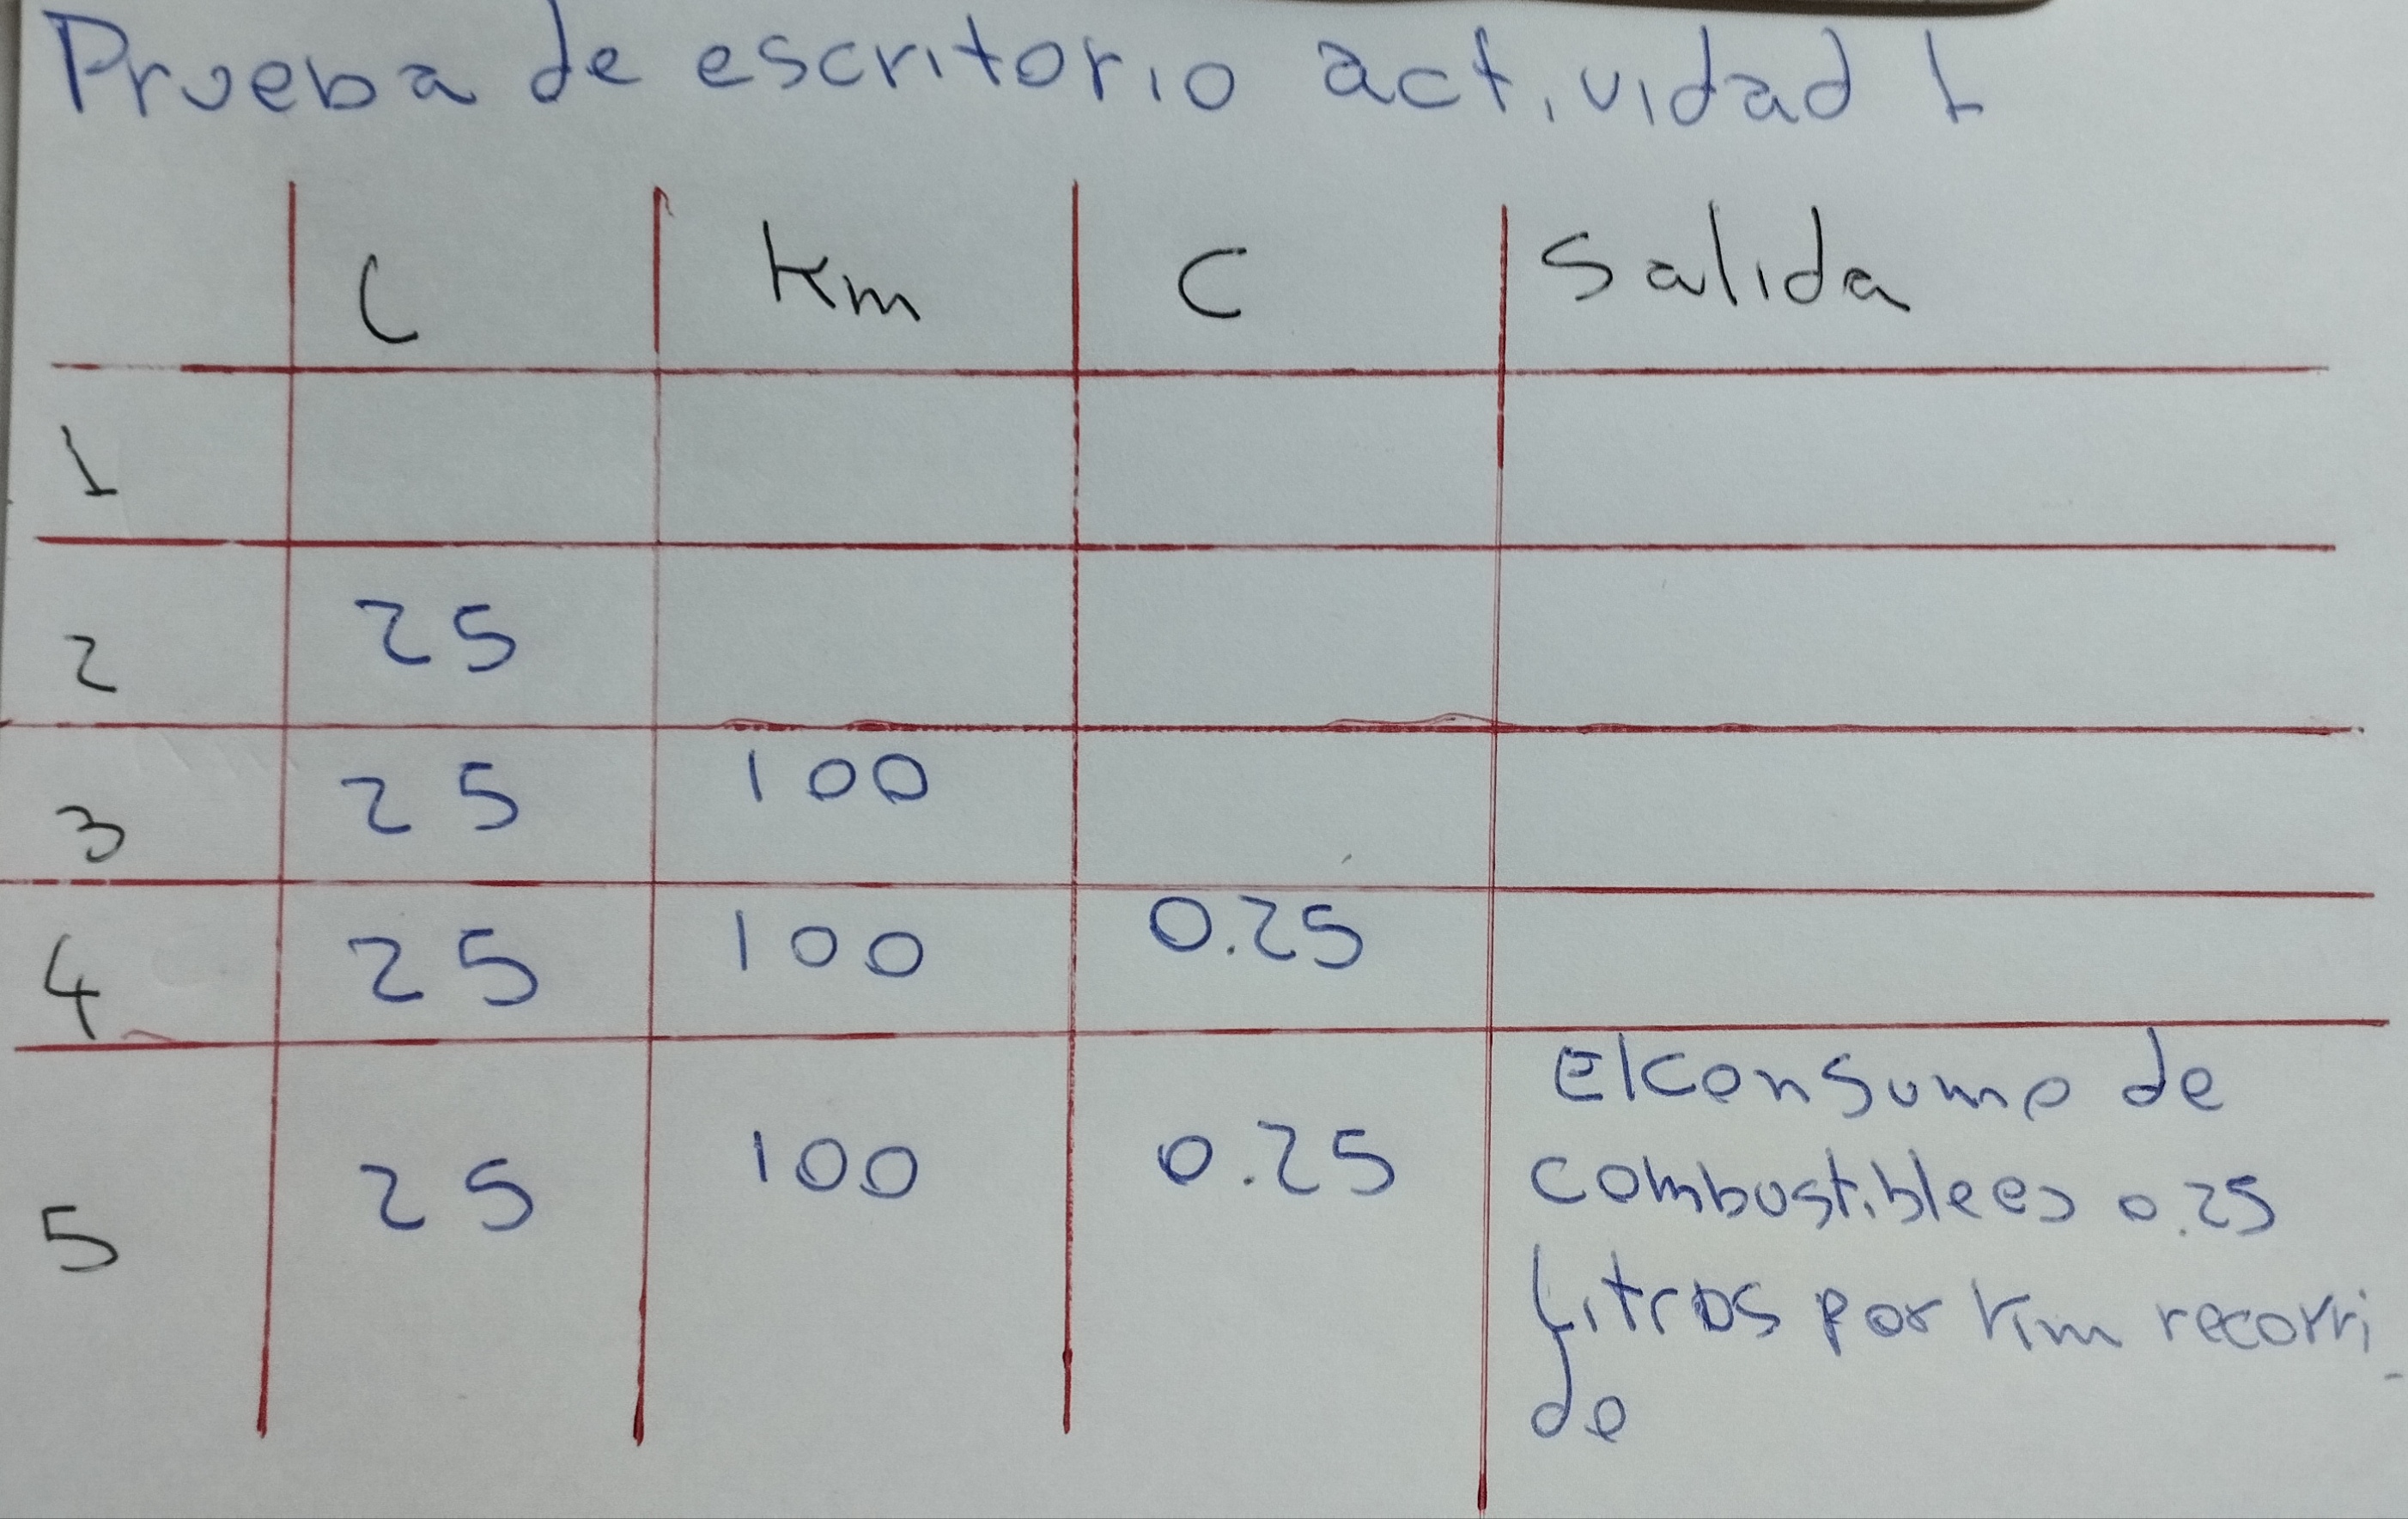 Prueba de escritorio actividad 1
L Km C Salida
1
2 25
3 25 100
4 25 100 0.25
5 25 100 0.25 El consumo de
combustible es 0.25
Litros por Km recorri-
do